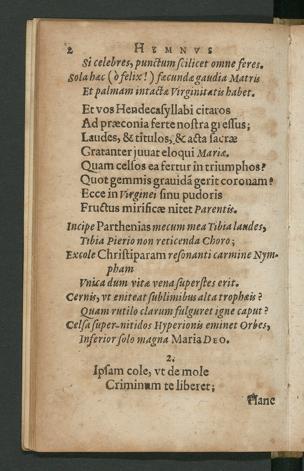 2 HEMNVS
Si celebres, punctum scilicet omne feres.
Sola hæc (ò felix!) fæcundæ gaudia Matris
Et palmam intactæ Virginitatis habet.
Et vos Hendecasyllabi citatos
Ad præconia ferte nostra gressus;
Laudes, & titulos, & acta sacræ
Gratanter juvat eloqui Mariæ.
Quam celsos ea fertur in triumphos?
Quot gemmis gravidã gerit coronam?
Ecce in Virginei sinu pudoris
Fructus mirificæ nitet Parentis.
Incipe Parthenias mecum mea Tibia laudes,
Tibia Pierio non reticenda Choro;
Excole Christiparam resonanti carmine Nym-
pham
Vnica dum vitæ vena superstes erit.
Cernis, vt eniteat sublimibus alta trophæis?
Quam rutilo clarum fulguret igne caput?
Celsa super-nitidos Hyperionis eminet Orbes,
Inferior solo magna Maria DEO.
2.
Ipsam cole, vt de mole
Criminum te liberet;
Hanc